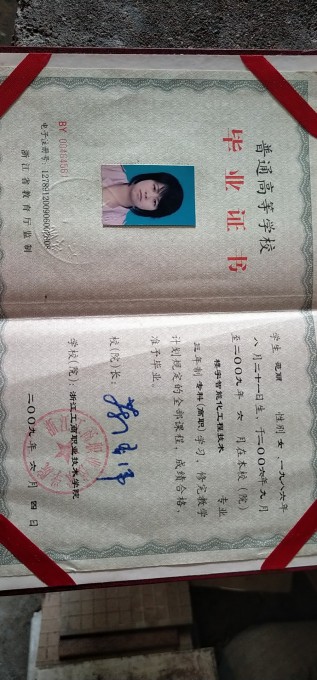 普通高等学校
毕业证书
BY 00484581
浙江省教育厅监制
学生 范丽 性别 女，一九八六年
八月二十一日生，于二〇〇六年九月
至二〇〇九年 六月在本校(院)
楼宇智能化工程技术 专业
叁年制 专科(高职)学习，修完教学
计划规定的全部课程，成绩合格，
准予毕业。
校(院)长：
学校(院)：浙江工商职业技术学院
二〇〇九年 六月 四日